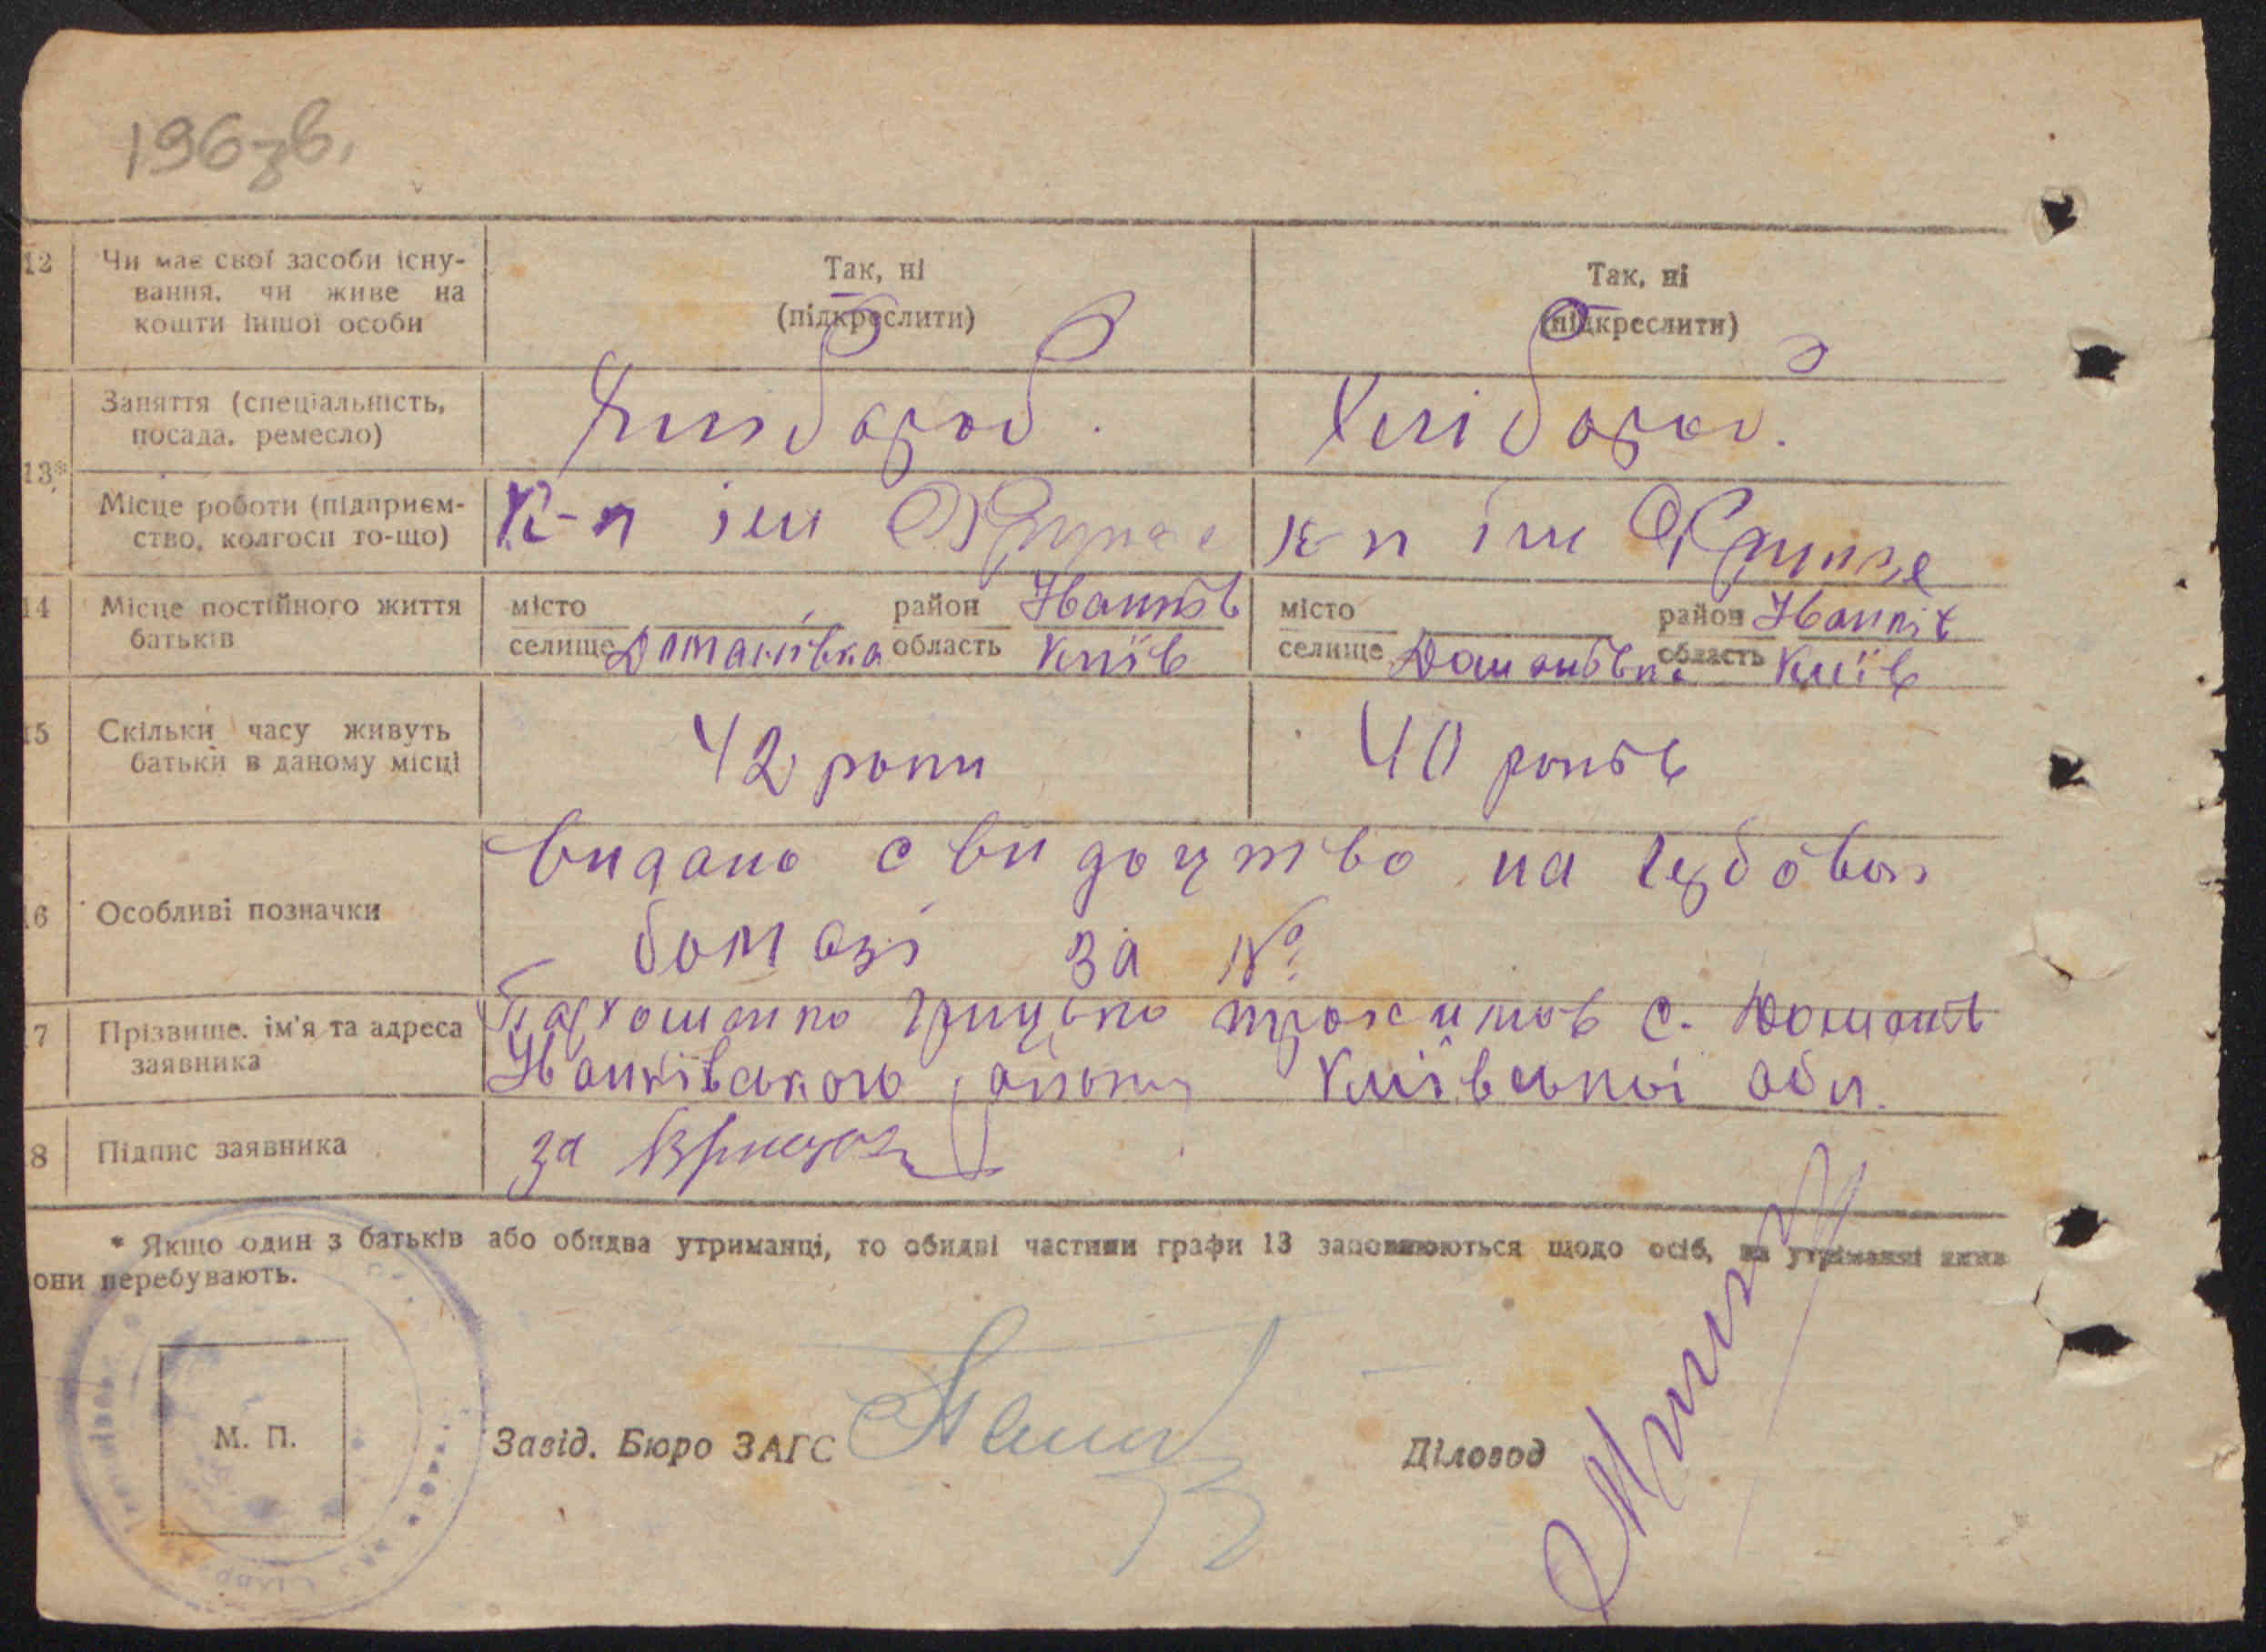 196 зв.
12 Чи має свої засоби існу-
вання, чи живе на
кошти іншої особи
Так, ні
(підкреслити)
Так, ні
(підкреслити)
13*
Заняття (спеціальність,
посада, ремесло)
Хлібороб.
Хлібороб.
Місце роботи (підприєм-
ство, колгосп то-що)
К-п ім Фрунзе
к-п ім Фрунзе
14 Місце постійного життя
батьків
місто район Іванків
селище Доманівка область Київ
місто район Іванків
селище Доманівка область Київ
15 Скільки часу живуть
батьки в даному місці
42 роки
40 років
16 Особливі позначки
видано свидоцтво на гербовій
бомазі за №
17 Прізвище, ім'я та адреса
заявника
Пархоменко Грицько с. Доманів
Іванківського району Київської обл.
18 Підпис заявника
за
* Якщо один з батьків або обидва утриманці, то обидві частини графи 13 заповнюються щодо осіб, на утриманні яких
вони перебувають.
М. П.
Завід. Бюро ЗАГС
Діловод